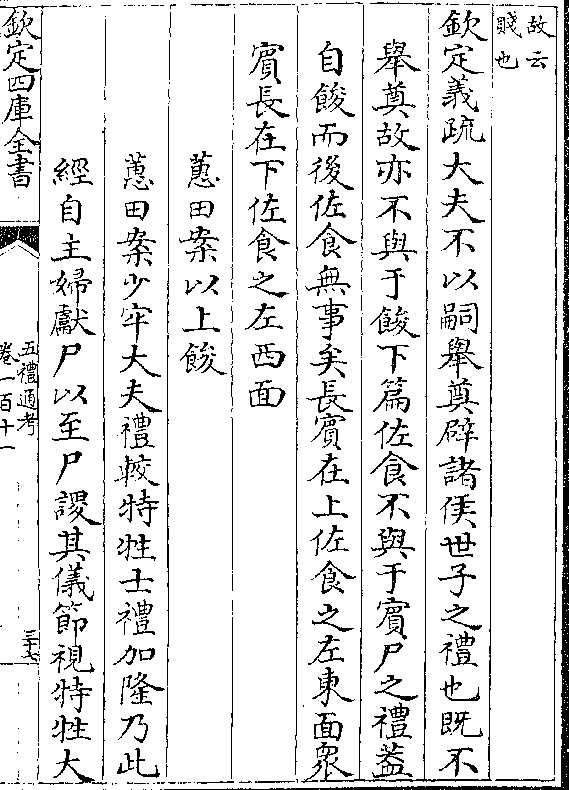 故云
賤也
欽定義疏大夫不以嗣舉奠辟諸侯世子之禮也既不
舉奠故亦不與于餕下篇佐食不與于賓尸之禮蓋
自餕而後佐食無事矣長賓在上佐食之左東面衆
賓長在下佐食之左西面
蕙田案以上餕
蕙田案少牢大夫禮較特牲士禮加隆乃此
經自主婦獻尸以至尸謖其儀節視特牲大
欽定四庫全書
五禮通考
卷一百十一
三十七